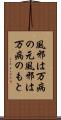 風邪は万病
の元風邪は
万病のもと